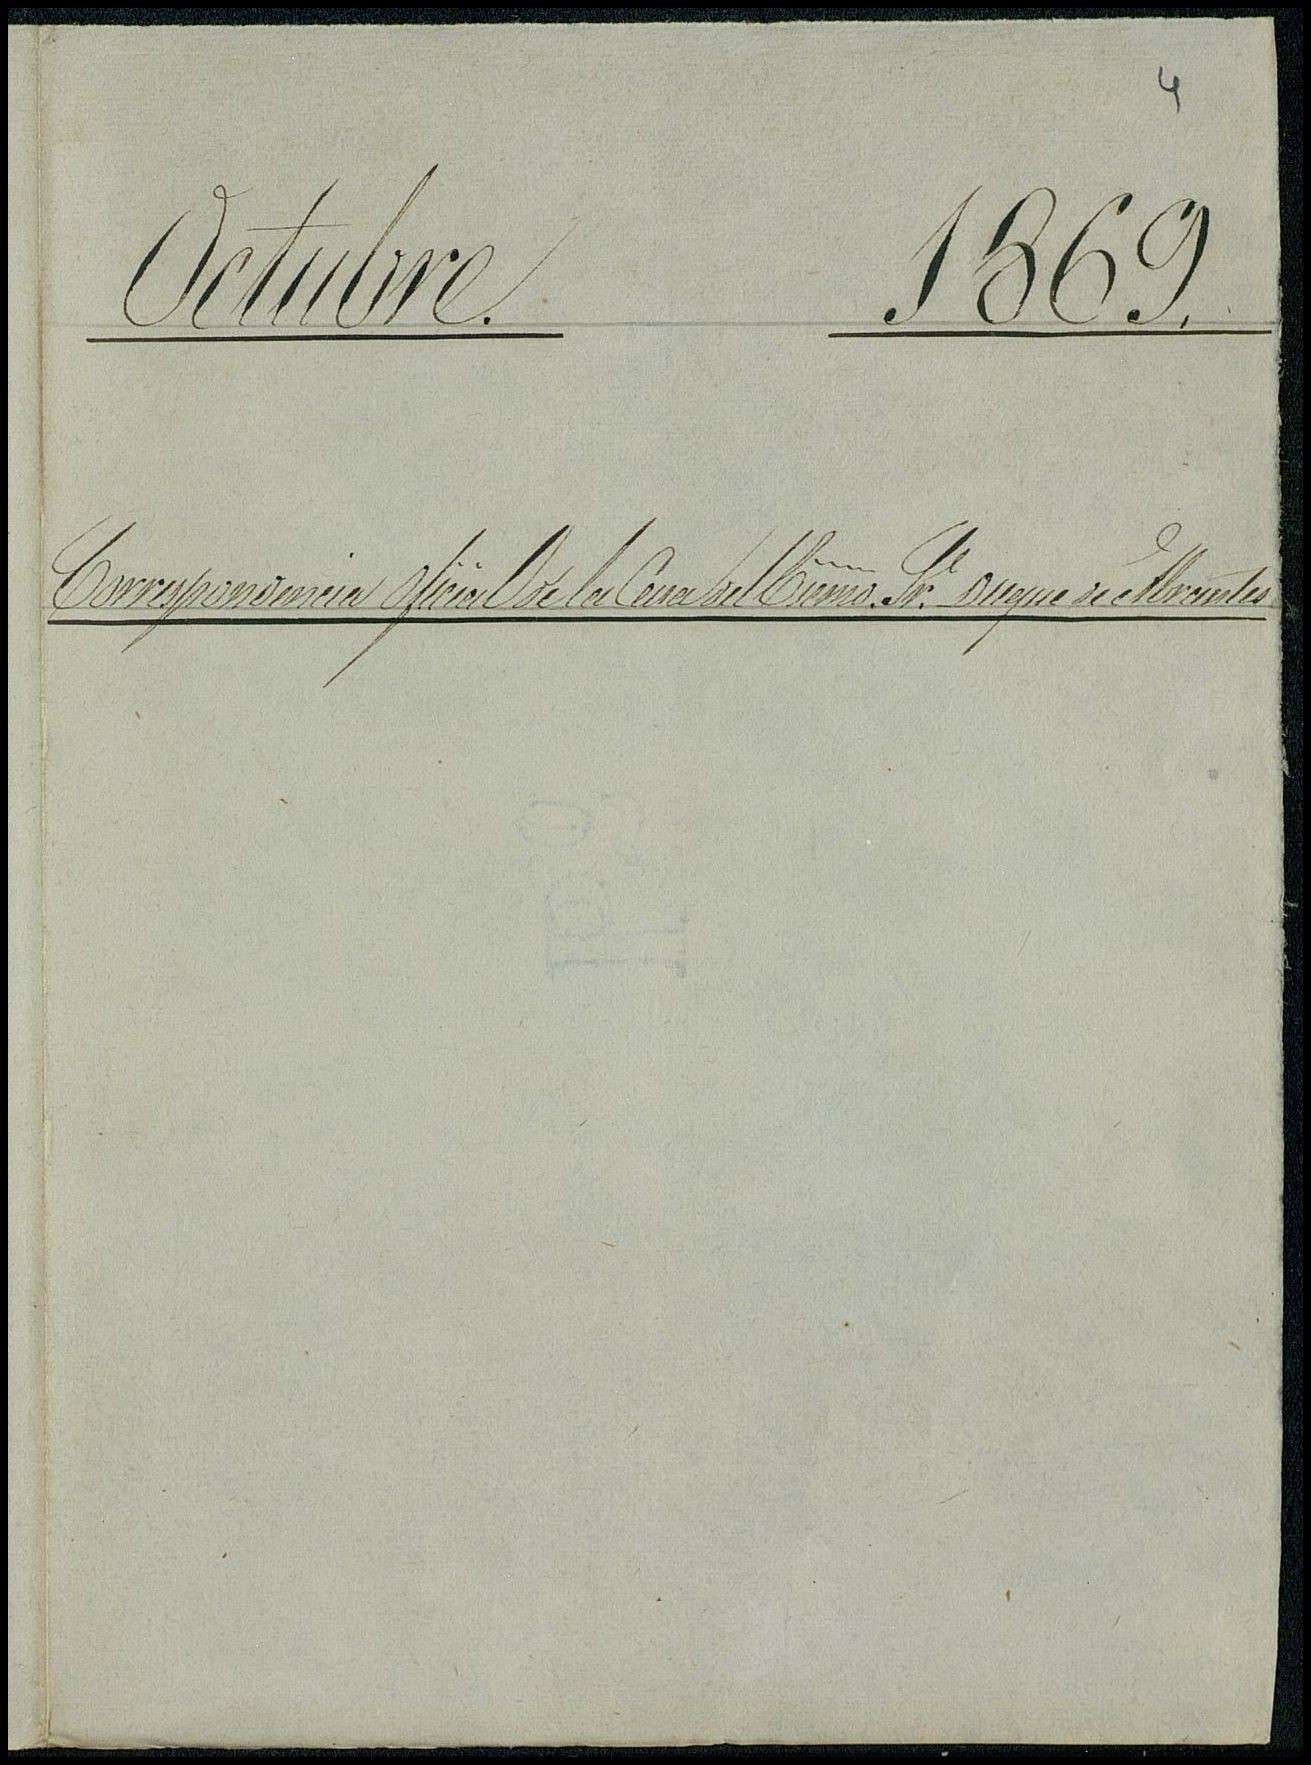 4
Octubre. 1869.
Correspondencia oficial de la Casa del Excmo. Sr. Duque de Abrantes